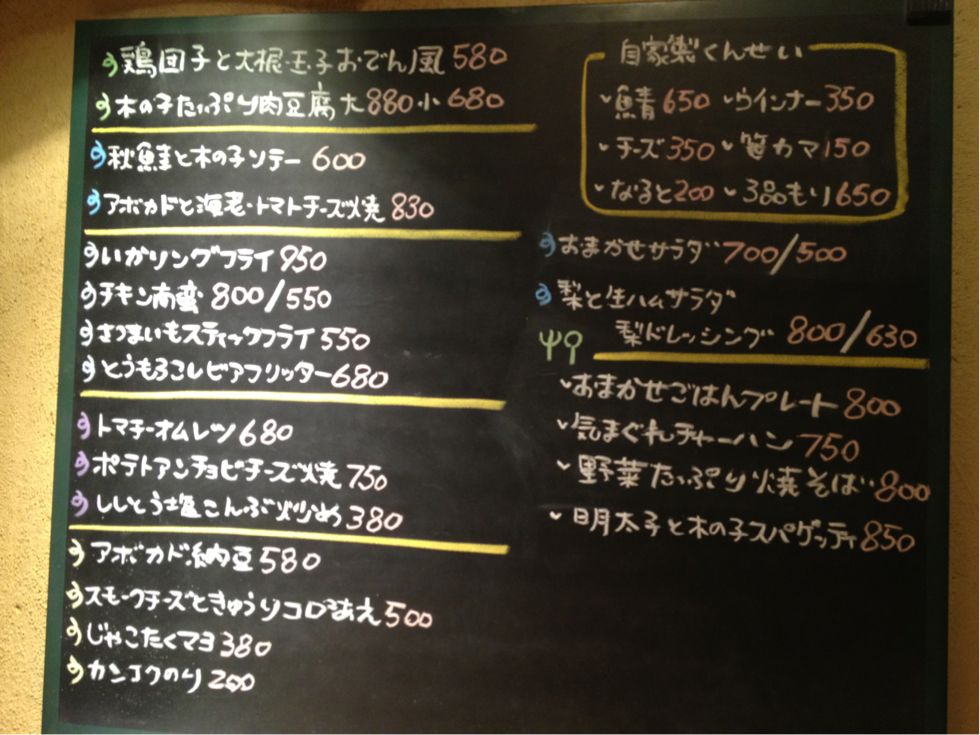 鶏団子と大根・玉子おでん風 580
木の子たっぷり肉豆腐 大880 小680
秋鮭と木の子ソテー 600
アボカドと海老・トマトチーズ焼 830
いかリングフライ 950
チキン南蛮 800/550
さつまいもスティックフライ 550
とうもろこしビアフリッター 680
トマチーオムレツ 680
ポテトアンチョビチーズ焼 750
ししとう塩こんぶ炒め 380
アボカド納豆 580
スモークチーズときゅうりコロコロあえ 500
じゃこたくマヨ 380
カンコクのり 200
自家製くんせい
鯖 650 ウインナー 350
チーズ 350 笹カマ 150
なると 200 3品もり 650
おまかせサラダ 700/500
梨と生ハムサラダ
梨ドレッシング 800/630
おまかせごはんプレート 800
気まぐれチャーハン 750
野菜たっぷり焼そば 800
明太子と木の子スパゲッティ 850